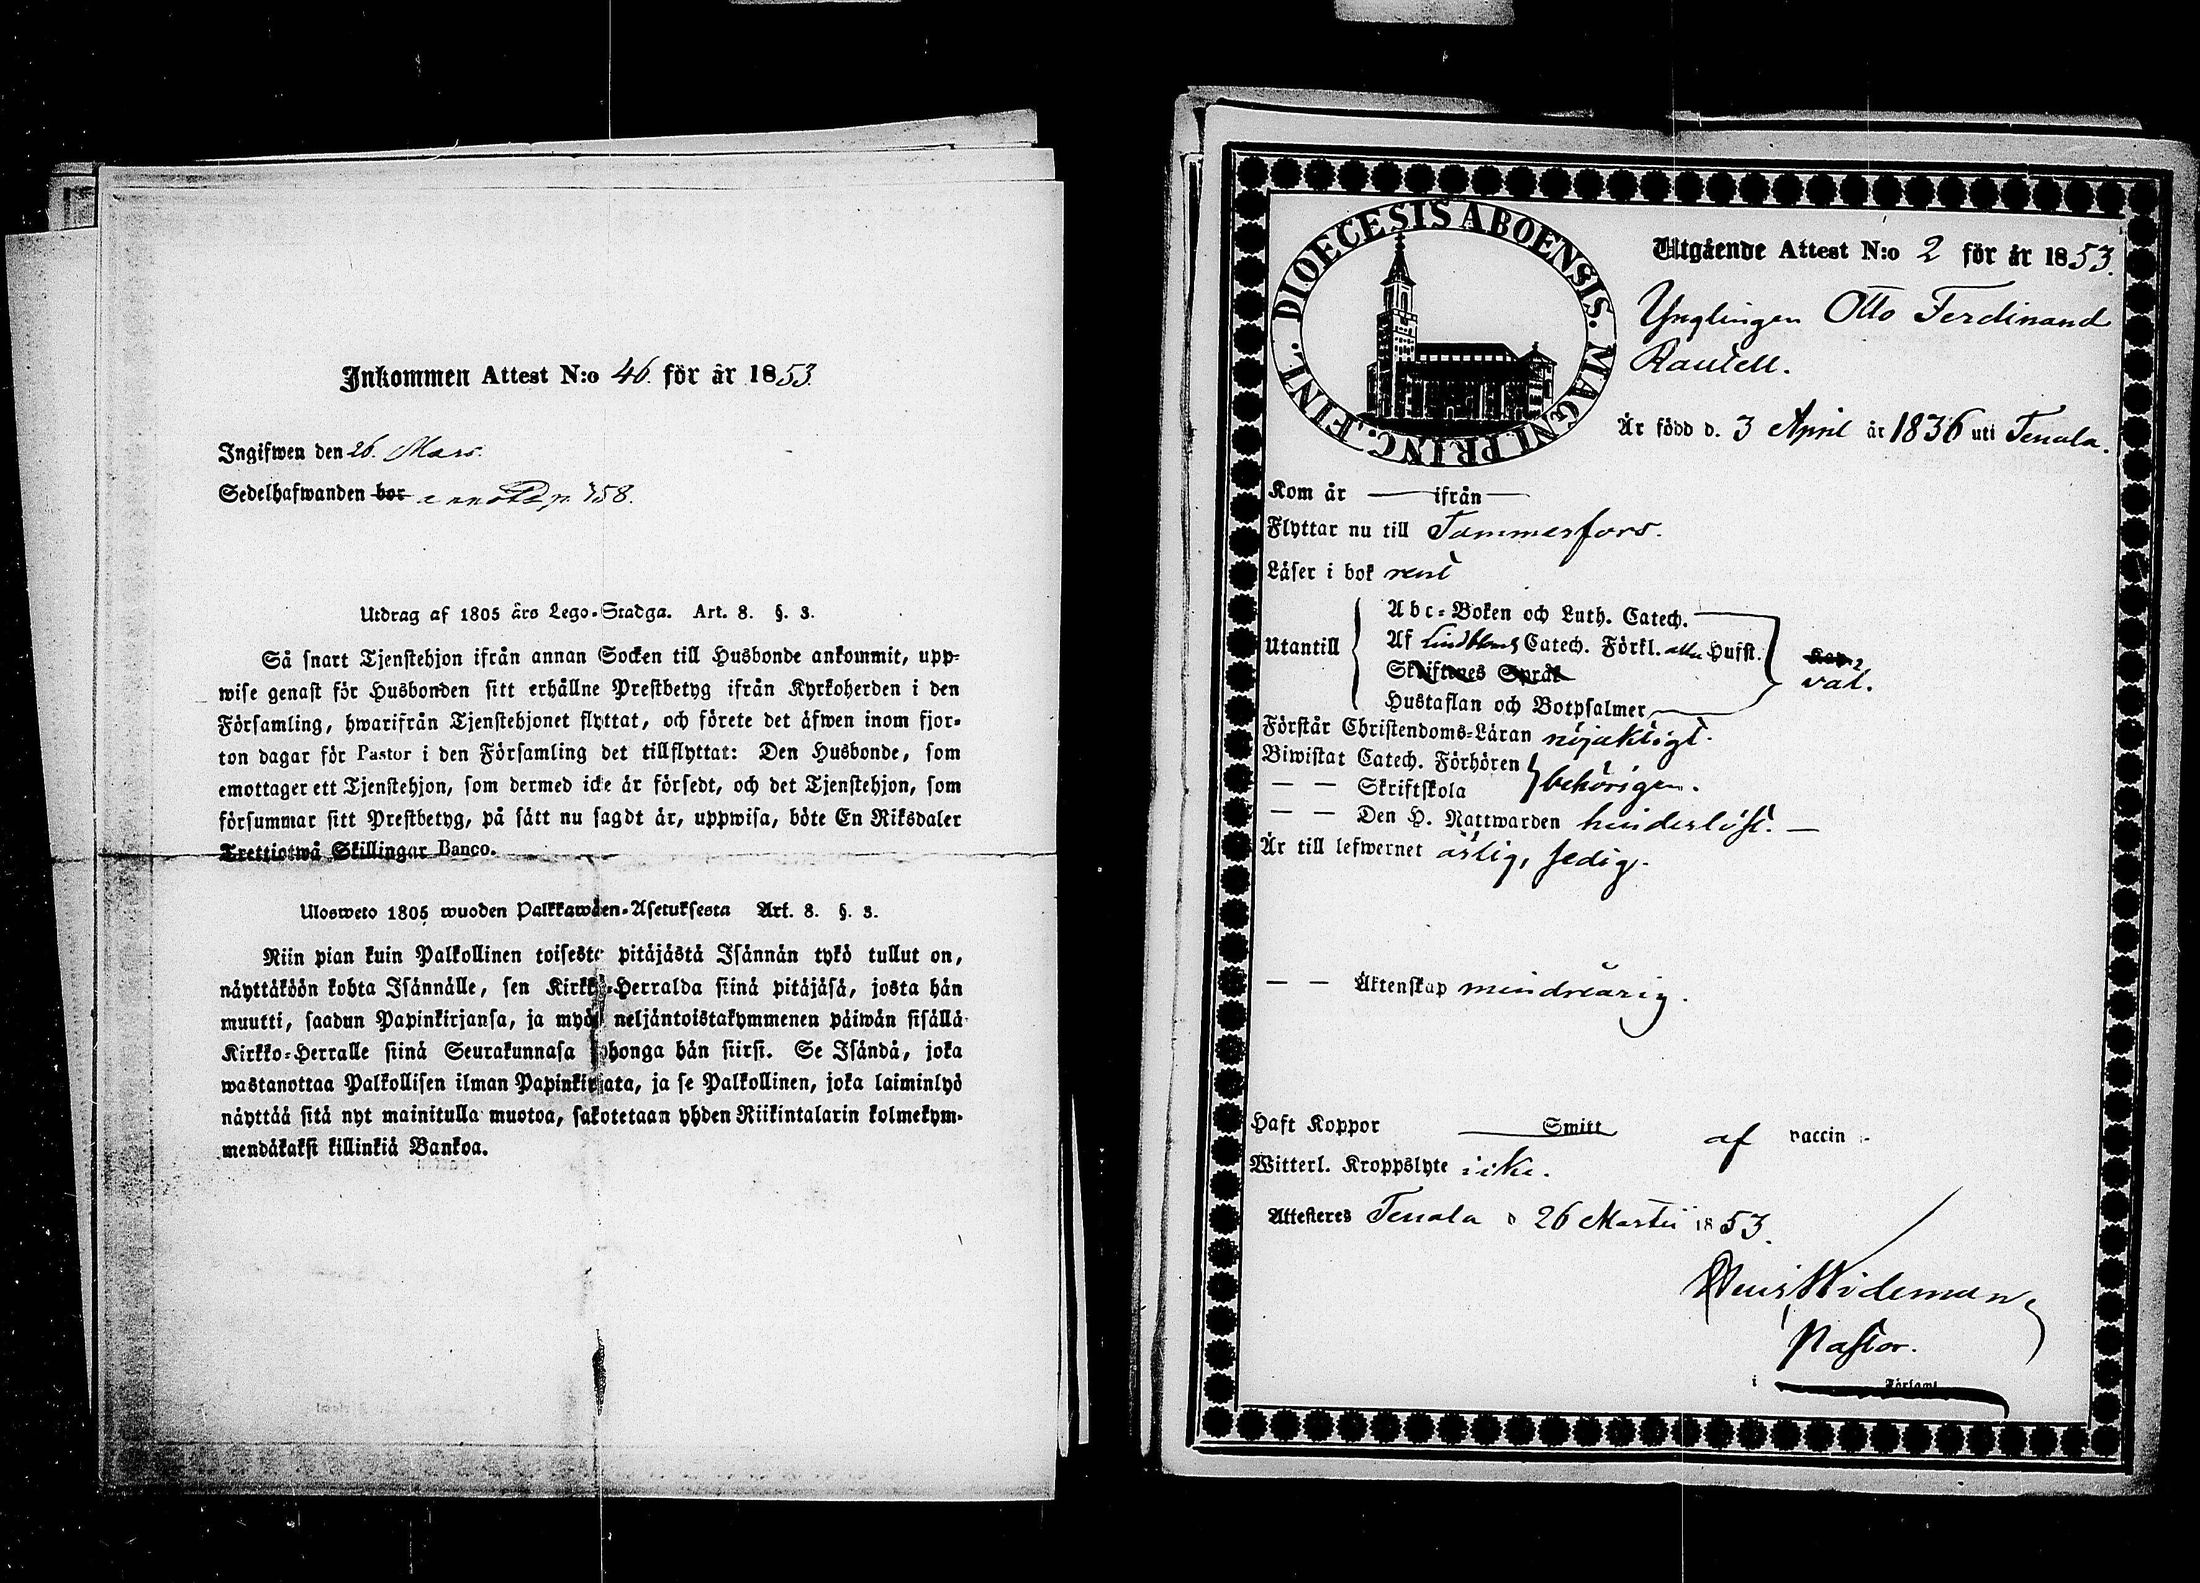 Inkommen Attest N:o 46. för år 1853.
Ingifwen den 26. Mars.
Sedelhafwanden bor 758.
Utdrag af 1805 års Lego-Stadga. Art. 8. §. 3.
Så snart Tjenstehjon ifrån annan Socken till Husbonde ankommit, upp-
wise genast för Husbonden sitt erhållne Prestbetyg ifrån Kyrkoherden i den
Församling, hwarifrån Tjenstehjonet flyttat, och förete det äfwen inom fjor-
ton dagar för Pastor i den Församling det tillflyttat: Den Husbonde, som
emottager ett Tjenstehjon, som dermed icke är försedt, och det Tjenstehjon, som
försummar sitt Prestbetyg, på sätt nu sagdt är, uppwisa, böte En Riksdaler
Trettiotwå Skillingar Banco.
Ulosweto 1805 wuoden Palkkawäen-Asetuksesta Art. 8. §. 3.
Niin pian kuin Palkollinen toisesta pitäjästä Isännän tykö tullut on,
näyttäköön kohta Isännälle, sen Kirkko-Herralda siinä pitäjäsä, josta hän
muutti, saadun Papinkirjansa, ja myös neljäntoistakymmenen päiwän sisällä
Kirkko-Herralle siinä Seurakunnasa johonga hän siirsi. Se Isändä, joka
wastanottaa Palkollisen ilman Papinkirjata, ja se Palkollinen, joka laiminlyö
näyttää sitä nyt mainitulla muotoa, sakotetaan yhden Riikintalarin kolmekym-
mendäkaksi killinkiä Bankoa.
DIOECESIS ABOENSIS. MAGNI PRINC. FINL.
Utgående Attest N:o 2 för år 1853.
Ynglingen Otto Ferdinand
Rautell.
Är född d. 3 April år 1836 uti Tenala.
Kom år — ifrån —
Flyttar nu till Tammerfors.
Läser i bok rent
Utantill
Abc-Boken och Luth. Catech.
Af Lindbloms Catech. Förkl. Husst.
Skriftenes Språk
Hustaflan och Botpsalmer
väl.
Förstår Christendoms-Läran nöjaktigt.
Biwistat Catech. Förhören
— — Skriftskola
behörigen.
— — Den H. Nattwarden hinderlöst. —
Är till lefwernet ärlig, sedig.
— — Äktenskap minderårig.
Haft Koppor Smitt af vaccin
Witterl. Kroppslyte icke.
Attesteras Tenala d 26 Martii 1853.
Wideman
Pastor.
i Församl.